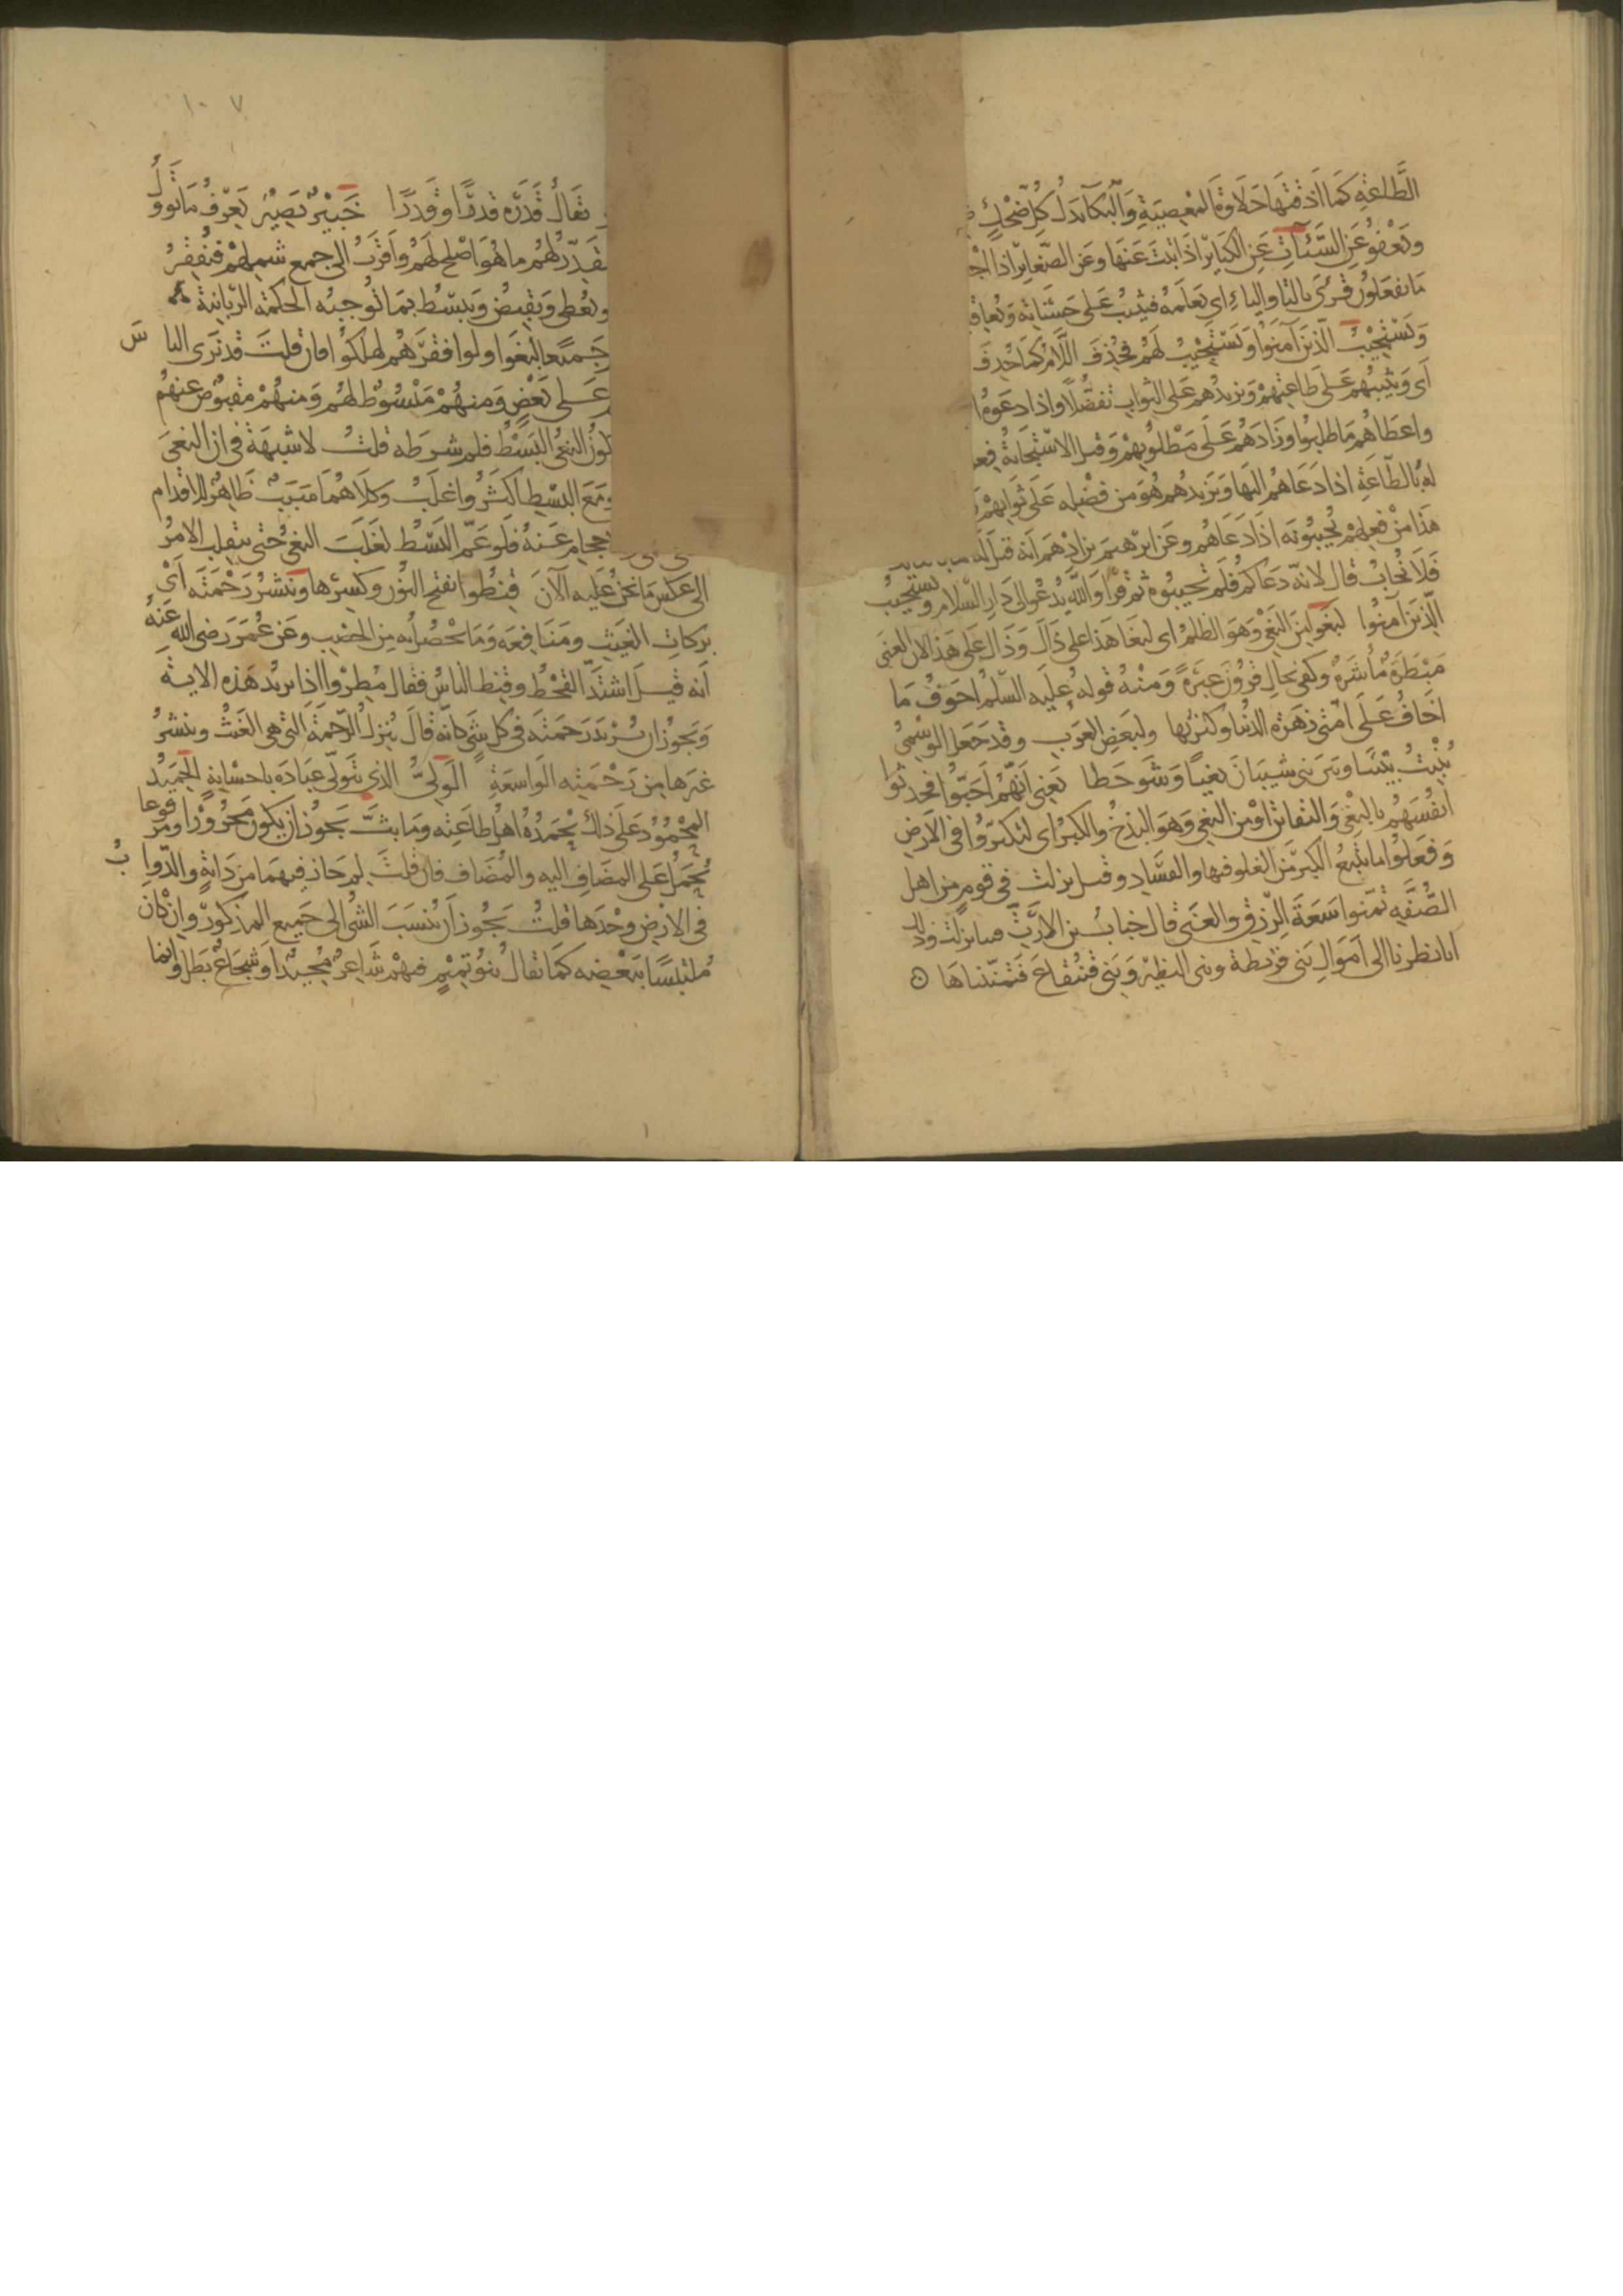 الطَّاعَةِ كَمَا اَذَقْتَهَا حَلَاوَةَ المَعْصِيَةِ وَالبُكَآءَ بَدَلَ كُلِّ ضَحِكٍ
وَيَعْفُو عَنِ السَّيِّئَاتِ عَنِ الكَبَائِرِ اذَا تِيبَ عَنْهَا وَعَنِ الصَّغَائِرِ اذا
مَا تَفْعَلُونَ قُرِئَ بالتا والياءِ اي يَعْلَمُه فيُثِيبُ عَلى حَسَنَاتِه وَيُعَاقِ
وَيَسْتَجِيْبُ الَّذِينَ آمَنُوا وَيَسْتَجِيْبُ لَهُمْ فَحُذِفَ اللَّامُ كَمَا حُذِفَ
اَى وَيُثِيبُهُمْ عَلَى طَاعَتِهِمْ وَيَزِيدُهم عَلى الثوابِ تَفَضُّلًا واذا دَعَوهُ
واعطَاهُم مَا طلبُوا وَزَادَهُم عَلَى مَطْلُوبِهِمْ وَقيل الاسْتِجَابَةُ فِع
لَهُ بالطَّاعَةِ اذا دَعَاهُم اليهَا وَيَزِيدُهم هُوَ مِن فَضْلِه عَلَى ثَوَابِهِمْ
هَذَا مِنْ فِعلِهِمْ يُجِيبُونَه اذَا دَعَاهُم وعَن ابرٰهيمَ بن ادْهَم انّه قيلَ لَه
فَلَا نُجَابُ قال لانّه دَعَاكم فَلَم تُجيبُوه ثم قَرَأ وَاللّٰه يَدْعُو الى دَارِ السَّلامِ ويَسْتَجِيبُ
الَّذينَ آمَنُوا لَبَغَوا مِنَ البَغْي وَهوَ الظُلمُ اى لَبَغَا هَذا على ذَاكَ وَذاكَ عَلى هَذا لان الغنَى
مَبْطَرَةٌ مَأشَرَةٌ وكَفى بِحَالِ قَارُونَ عِبرَةً وَمِنْهُ قَولُه عَلَيه السَّلٰمُ اخوَفُ مَا
اَخَافُ عَلَى اُمّتِى زَهْرَة الدُّنيا وكثرَتُها ولبعضِ العَرَبِ وقد جَعَلَ الوَسْمِىُّ
يُنْبِتُ بَيْنَنَا وَبَينَ بَنى شَيبَانَ نَبْعًا وَشَوحَطا يَعنِى اَنّهُم اَحَبُّوا فحَدَّثُوا
اَنفُسَهُم بِالبَغْىِ وَالتفاتن اوْ مِن البَغْيِ وَهوَ البَذَخُ وَالكِبْرُ اى لتكبَّرُوا فى الاَرضِ
وَفَعَلوُا مَا يَتْبعُ الكِبْرَ مِنَ العُلوِ فيها والفَسَادِ وقيل نزلت فى قَومٍ مِن اهلِ
الصُّفّةِ تَمَنَّوا سَعَةَ الرِّزقِ والغِنَى قال خبابُ بن الارَتِّ فينا نزلت وذلك
انا نظرنا الى اَموَالِ بَنى قُرَيظَة وبنى النظيرِ وَبَنى قَينُقاعَ فَتَمَنَّيناهَا ه
١٠٧
يُقَالُ قَدَرَه قَدْرًا وَقَدَرًا خَبِيْرٌ بَصِيْرٌ يَعْرِفُ مَا يَوولُ
فيُقَدّرُ لَهُم ما هُوَ اَصْلح لَهُم وَاَقرَبُ الى جمعِ شَملِهِمْ فيُفْقِرُ
ويُعْطِى وَيَقْبِضُ وَيَبسُطُ بِمَا تُوجِبُه الحكمَةُ الربانيةُ
جَميعًا لَبَغَوا ولو افقَرَهُم لهلَكُوا فان قلتَ قد نَرَى النا سَ
عَلى بَعْضٍ وَمِنهُم مَبْسُوطٌ لهُم وَمنهُمْ مَقبُوضٌ عنهُم
البَسْطُ فلم شرطه قلتُ لاشبهَة فى ان البغىَ
ومَعَ البَسْطِ اكثَرُ واغلَبُ وَكلَاهُما سَبَبٌ ظَاهِرٌ للاقدام
عَنهُ فَلو عَمَّ البَسْطُ لَغَلَبَ البَغىُ حَتى ينقلبَ الامرُ
الى عكسِ مَا نحنُ عَليه الآنَ قنطُوا بفتح النُون وكسِرها ويَنْشُرُ رَحْمَتَه اَىْ
بركاتِ الغَيثِ ومَنَافِعَه وَمَا يحْصُلُ به مِن الخصْبِ وعَن عُمَرَ رَضى الله عَنهُ
اَنه قيل اشتَدَّ القَحْطُ وقنط الناسُ فقالَ مُطِرُوا اذًا يريدُ هَذه الايَة
وَيجوُز ان يُرِيْدَ رَحمَتَه فى كل شَىٍ كانّه قالَ يُنزلُ الرَّحمَةَ التى هى الغَيثُ وينشرُ
غَيرَها مِن رَحْمَتِه الوَاسعَةِ الوَلِىُّ الذى يَتَولّى عبَادَه بإحسَانِه الحَمِيْدُ
المَحْمُوُد عَلَى ذلكَ يَحْمَدُه اهل طاعَتِه ومَا بَثَّ يجُوز ان يكون مَجْرورًا ومرفوعا
يُحْمَلُ على المضَافِ اليه والمُضَاف فان قلتَ لِمَ جَازَ فيهمَا مِن دَابّةٍ والدّوا بُّ
فى الارضِ وحْدَها قلتُ يجُوز اَن يُنسَبَ الشىُ الى جَميعِ المذكورِ وان كانَ
مُلتبسًا ببَعْضِه كمَا يقالُ بَنُو تَمِيْمٍ فيهمْ شَاعِرٌ مُجِيدٌ اَو شُجَاعٌ بَطلٌ وانما